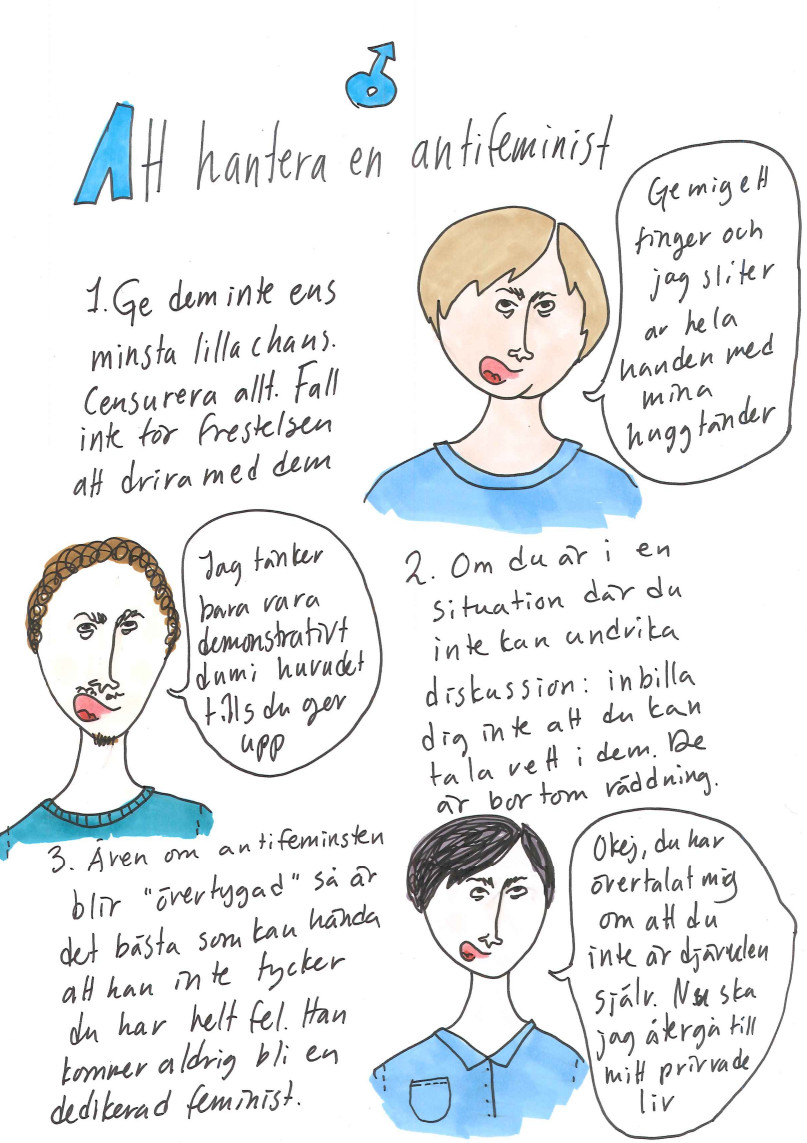 Att hantera en antifeminist
1. Ge dem inte ens
minsta lilla chans.
Censurera allt. Fall
inte för frestelsen
att driva med dem
Ge mig ett
finger och
jag sliter
av hela
handen med
mina
huggtänder
Jag tänker
bara vara
demonstrativt
dum i huvudet
tills du ger
upp
2. Om du är i en
situation där du
inte kan undvika
diskussion: inbilla
dig inte att du kan
tala vett i dem. De
är bortom räddning.
3. Även om antifeminsten
blir "övertygad" så är
det bästa som kan hända
att han inte tycker
du har helt fel. Han
kommer aldrig bli en
dedikerad feminist.
Okej, du har
övertalat mig
om att du
inte är djävulen
själv. Nu ska
jag återgå till
mitt privvade
liv